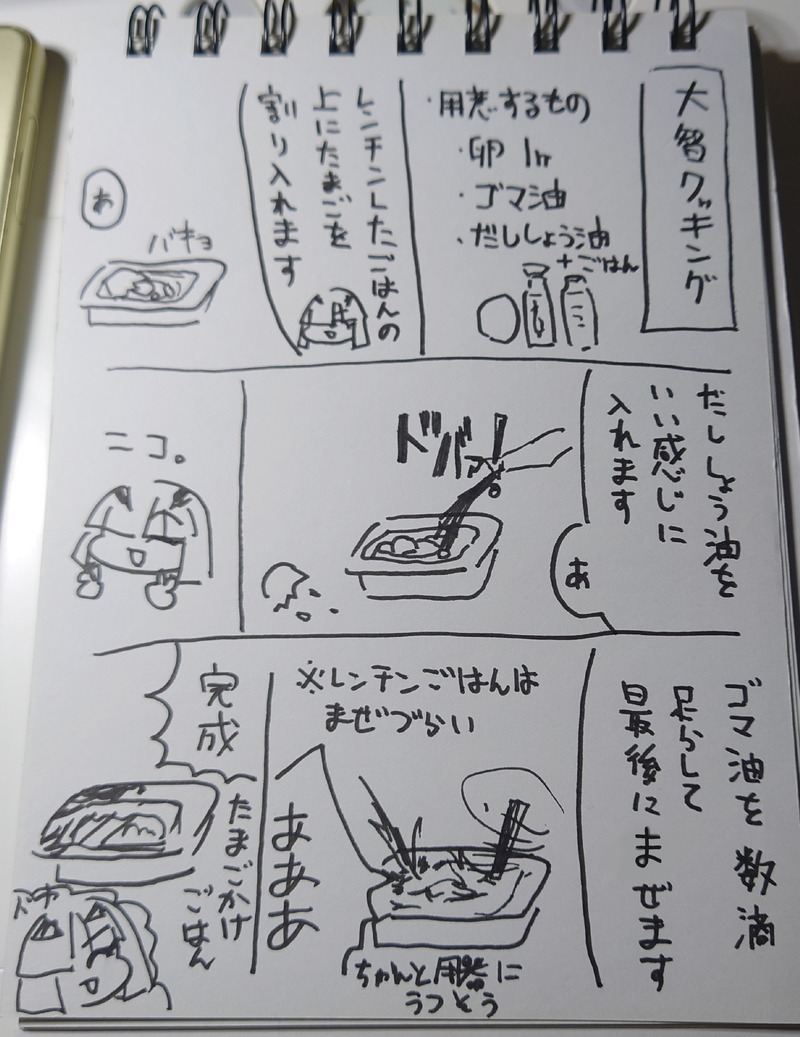 大智クッキング
・用意するもの
・卵 1ヶ
・ゴマ油
・だししょう油
+ごはん
レンチンしたごはんの
上にたまごを
割り入れます
バキョ
あ
だししょう油を
いい感じに
入れます
あ
ドバァ
ニコ。
ゴマ油を数滴
足らして
最後にまぜます
※レンチンごはんは
まぜづらい
あああ
ちゃんと用器に
うつそう
完成
たまごかけ
ごはん